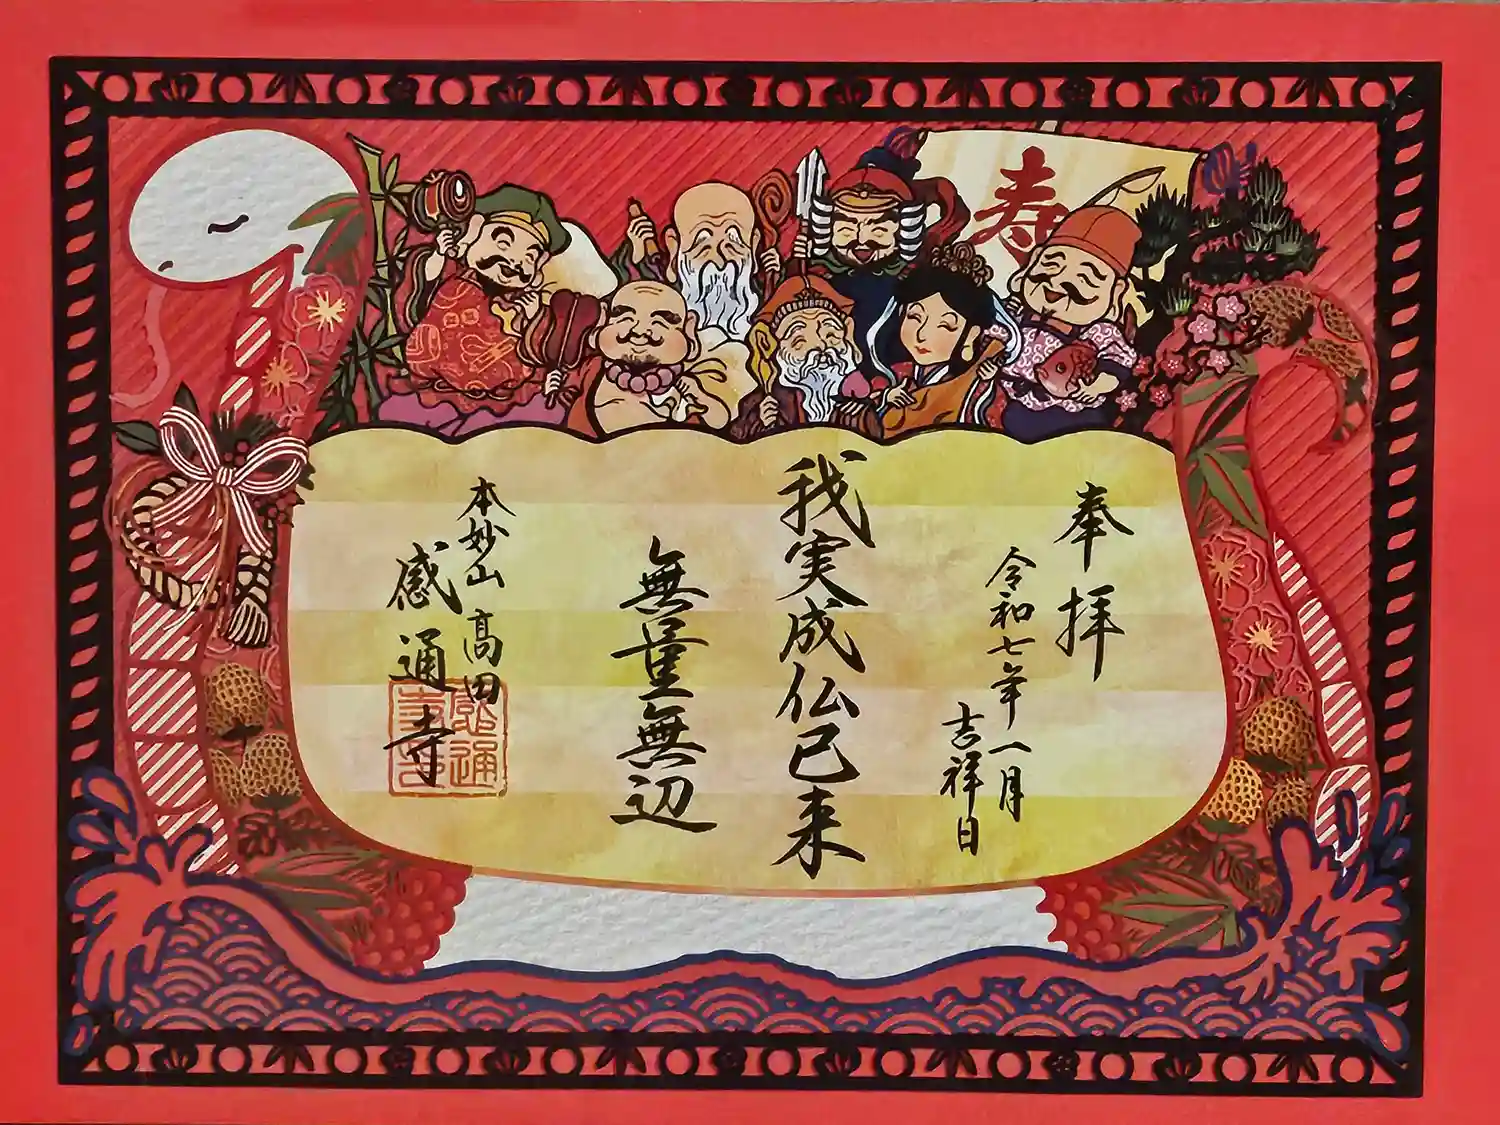 寿
奉拝
令和七年一月
吉祥日
我実成仏已来
無量無辺
本妙山 高田
感通寺
感通
寺